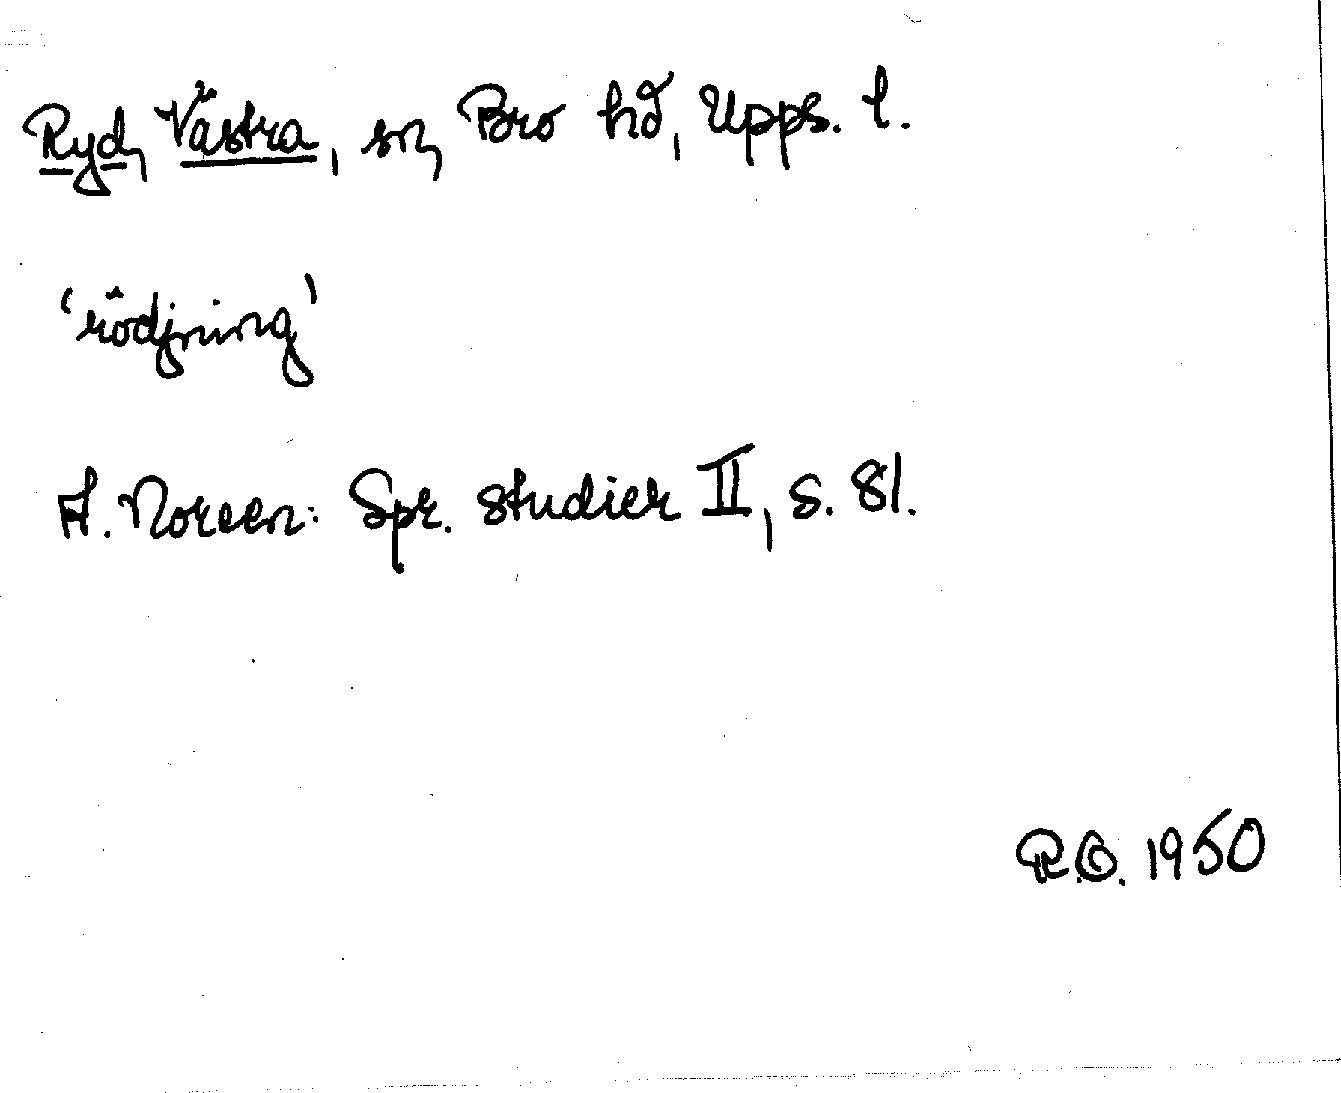 Ryd, Västra, sn, Bro hd, Upps. l.
'rödjning'
A. Noreen: Spr. studier II, s. 81.
R.O. 1950